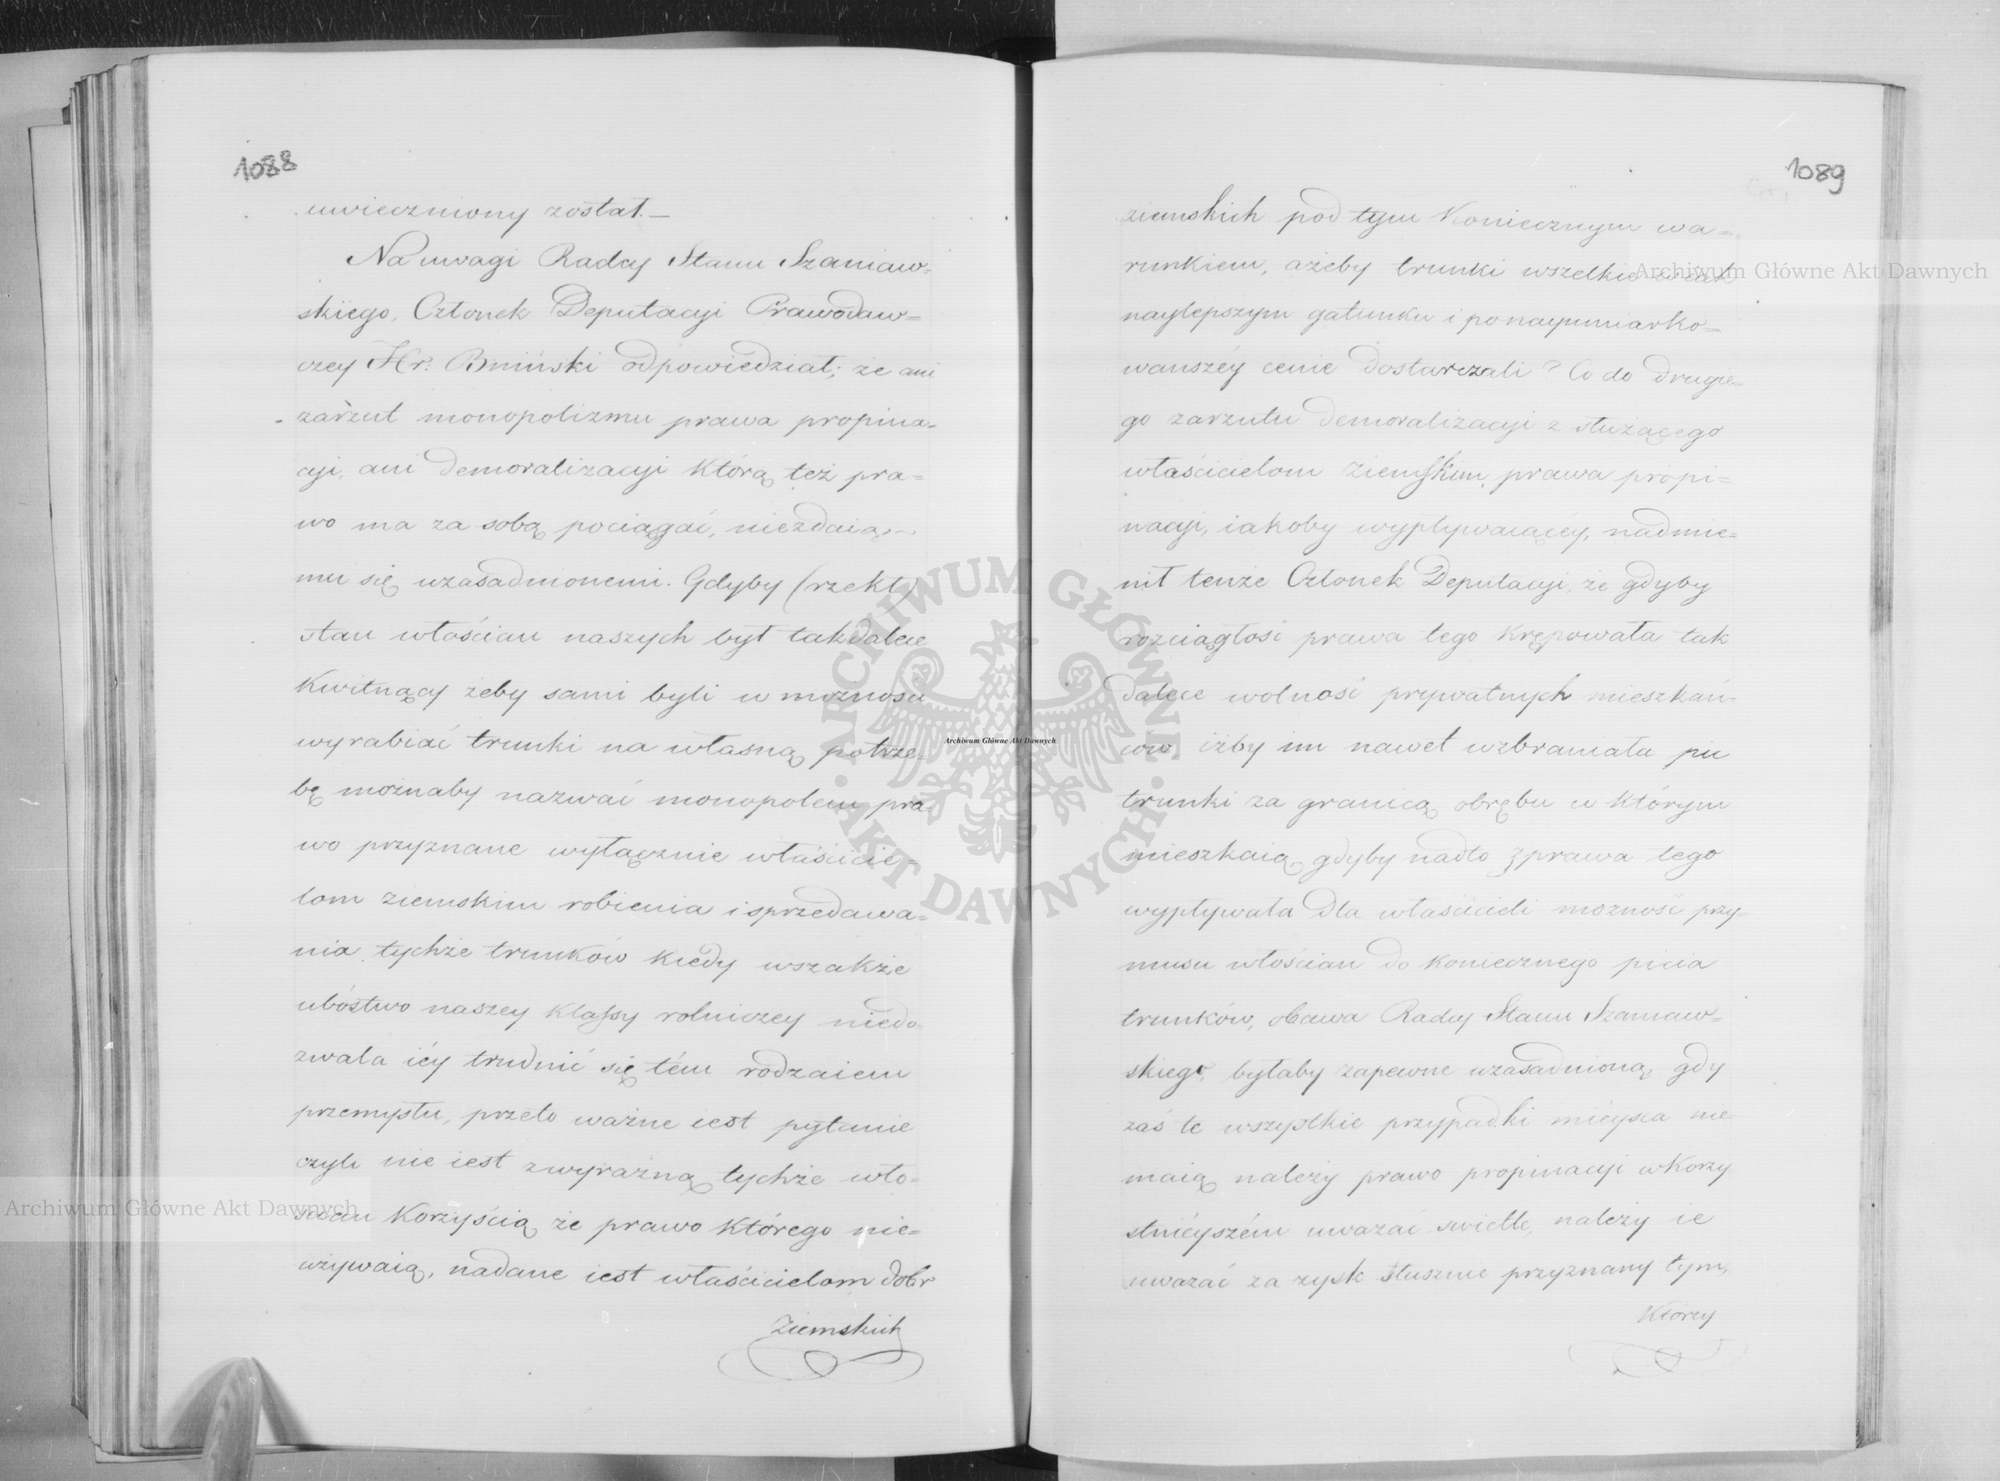 1088
uwieczniony został.—
Na uwagi Radcy Stanu Szaniaw-
skiego, Członek Deputacyi Prawodaw=
czey Hr: Bniński odpowiedział; że ani
zarzut monopolizmu prawa propina-
cyi, ani demoralizacyi którą też pra=
wo ma za sobą pociągać, niezdaią
mu się uzasadnionemi. Gdyby (rzekł)
stan włościan naszych był takdalece
kwitnący żeby sami byli w możności
wyrabiać trunki na własną potrze-
bę możnaby nazwać monopolem pra
wo przyznane wyłącznie właścicie-
lom ziemskim robienia i sprzedawa-
nia tychże trunków kiedy wszakże
ubóstwo naszey klassy rolniczey niedo-
zwala iéy trudnić się tém rodzaiem
przemysłu, przeto ważne iest pytanie
czyli nie iest zwyraźną tychże wło-
ścian korzyścią że prawo którego nie-
używaią, nadane iest właścicielom dobr
Ziemskich
1089
ziemskich pod tym koniecznym wa-
runkiem, ażeby trunki wszelkie w iak
naylepszym gatunku i ponayumiarko-
wanszéy cenie dostarczali? Co do drugie-
go zarzutu demoralizacyi z służącego
właścicielom ziemskim, prawa propi=
nacyi, iakoby wypływaiącéy, nadmie-
nił tenże Członek Deputacyi, że gdyby
rozciągłość prawa tego krępowała tak
dalece wolność prywatnych mieszkań-
ców, iżby im nawet wzbraniała pić
trunki za granicą obrębu w którym
mieszkaią gdyby nadto z prawa tego
wypływała dla właścicieli możność przy-
musu włościan do koniecznego picia
trunków, obawa Radcy Stanu Szaniaw-
skiego, byłaby zapewne uzasadnioną gdy
zaś te wszystkie przypadki mieysca nie
maią należy prawo propinacyi w korzy
stnieyszém uważać swietle, należy ie
uważać za zysk słusznie przyznany tym,
którzy
Archiwum Główne Akt Dawnych
Archiwum Główne Akt Dawnych
Archiwum Główne Akt Dawnych
ARCHIWUM GŁÓWNE AKT DAWNYCH